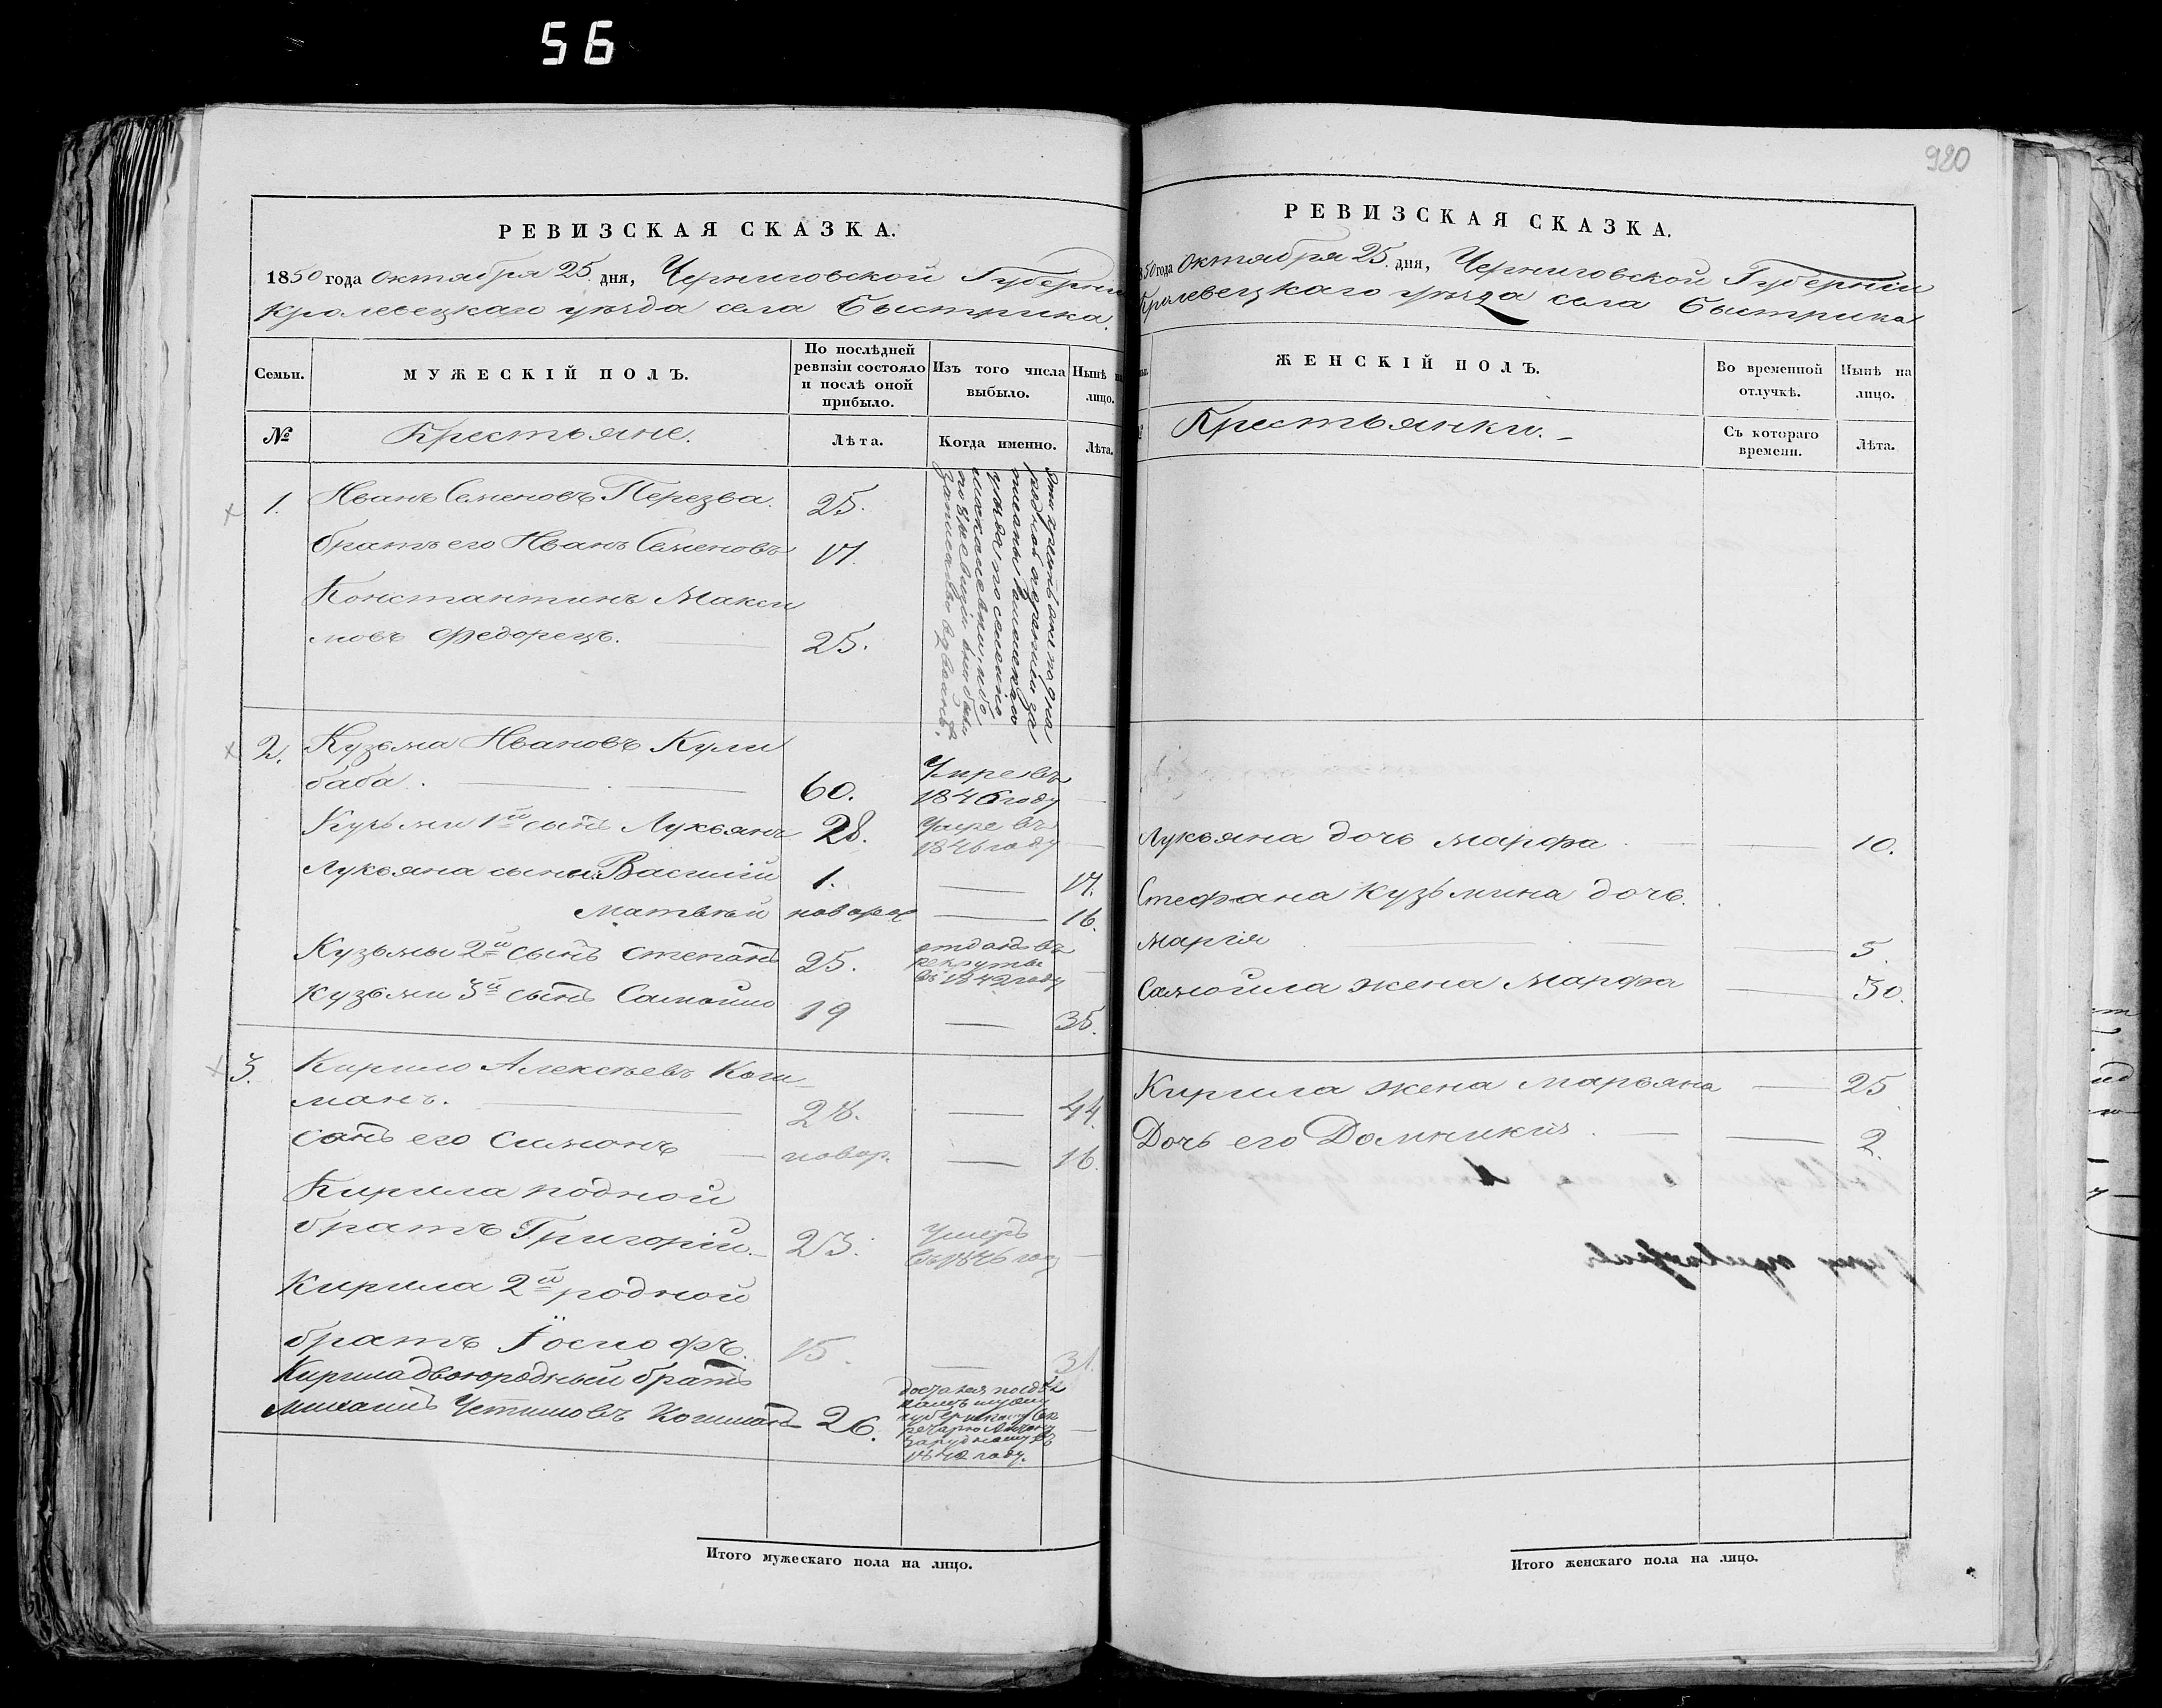 56
920
РЕВИЗСКАЯ СКАЗКА.
1850 года Октября 25 дня, Черниговской Губернiи
Кролевецкаго уѣзда села Быстрика.
Семьи.
МУЖЕСКIЙ ПОЛЪ.
По послѣдней ревизiи состояло и послѣ оной прибыло.
Изъ того числа выбыло.
Нынѣ на лицо.
№
Крестьяне.
Лѣта.
Когда именно.
Лѣта.
1. Иванъ Семеновъ Перезва. 25.
братъ его Иванъ Семеновъ 17.
Константинъ Макси
мовъ Федорецъ. 25.
2. Кузьма Ивановъ Кули
баба. 60. Умре въ 1846 году
Кузьмы 1й сынъ Лукьянъ 28. Умре въ 1846 году
Лукьяна сыны Василiй 1. 17.
Матвѣй новорож 16.
Кузьмы 2й сынъ Степанъ 25. отданъ въ рекруты въ 1842 году
Кузьмы 3й сынъ Самойло 19 35.
3. Кирило Алексѣевъ Кош
манъ. 28. 44
сынъ его Симонъ новор. 16.
Кирила родной
братъ Григорiй 23. Умеръ въ 1846 год
Кирила 2й родной
братъ Iосифъ. 15. 31.
Кирила двоюродный братъ
Михаилъ Устимовъ Кошманъ 26. 1842 году.
Итого мужескаго пола на лицо.
РЕВИЗСКАЯ СКАЗКА.
1850 года Октября 25 дня, Черниговской Губернiи
Кролевецкаго уѣзда села Быстрика
ЖЕНСКIЙ ПОЛЪ.
Во временной отлучкѣ.
Нынѣ на лицо.
Крестьянки.
Съ котораго времени.
Лѣта.
Лукьяна дочь Марфа 10.
Стефана Кузьмина дочь
Марiя 5.
Самойла жена Марфа 30.
Кирила жена Марьяна 25
Дочь его Домникiя 2.
Итого женскаго пола на лицо.